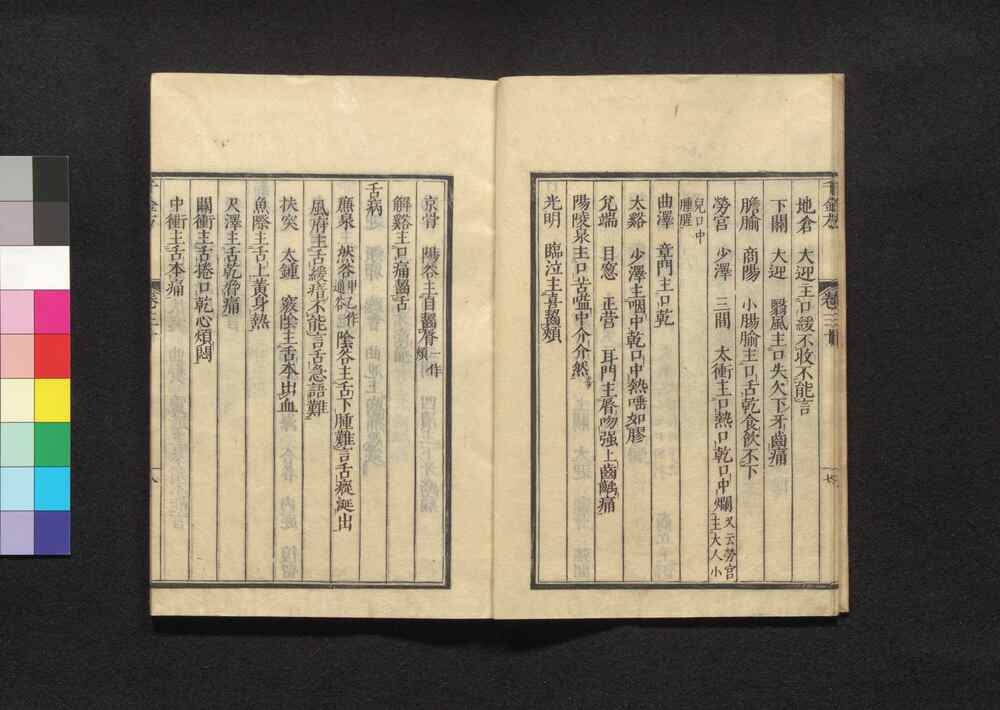 地倉 大迎主口緩不收不能言
下關 大迎 翳風主口失欠下牙齒痛
膽腧 商陽 小腸腧主口舌乾食飲不下
勞宮 少澤 三間 太衝主口熱口乾口中爛又云勞宮主大人小
兒口中腫腥
曲澤 章門主口乾
太谿 少澤主咽中乾口中熱唾如膠
兌端 目窻 正營 耳門主脣吻强上齒齲痛
陽陵泉主口苦嗌中介介然
光明 臨泣主喜齧頰
卷三十
七
京骨 陽谷主自齧脣一作頰
解谿主口痛齧舌
舌病
廉泉 然谷甲乙作通谷 陰谷主舌下腫難言舌瘲涎出
風府主舌緩瘖不能言舌急語難
扶突 大鍾 竅陰主舌本出血
魚際主舌上黃身熱
尺澤主舌乾脅痛
關衝主舌捲口乾心煩悶
中衝主舌本痛
八